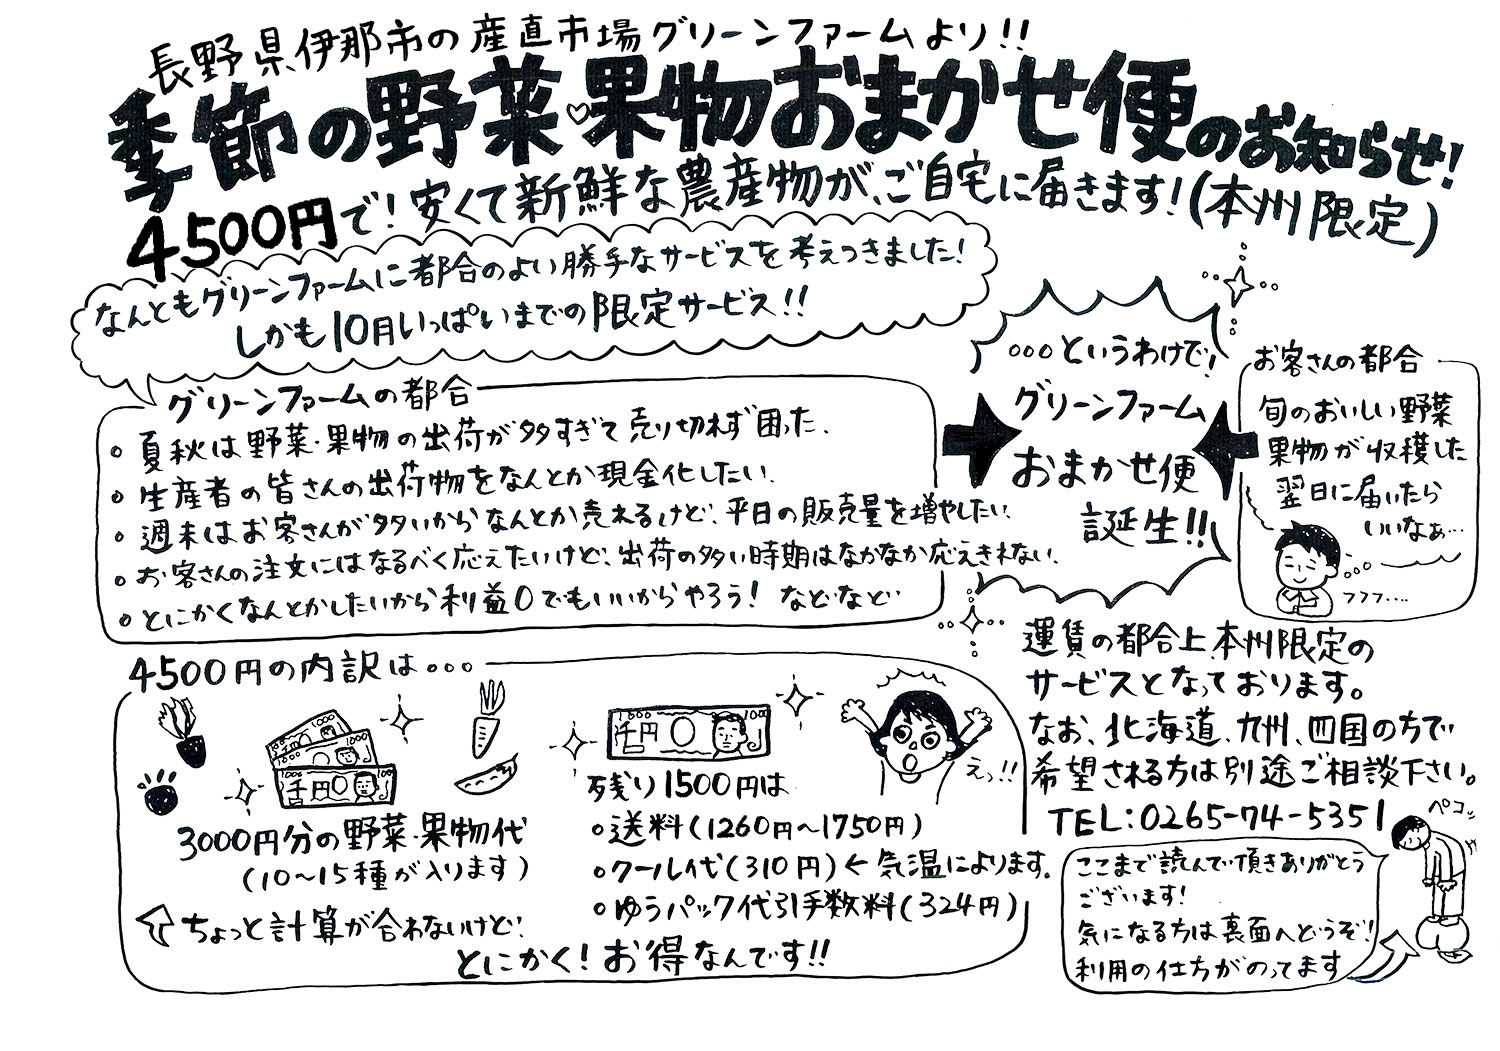 長野県伊那市の産直市場グリーンファームより!!
季節の野菜♡果物おまかせ便のお知らせ!
4500円で!安くて新鮮な農産物が、ご自宅に届きます!(本州限定)
なんともグリーンファームに都合のよい勝手なサービスを考えつきました!
しかも10月いっぱいまでの限定サービス!!
グリーンファームの都合
。夏秋は野菜・果物の出荷が多すぎて売り切れず困った.
。生産者の皆さんの出荷物をなんとか現金化したい.
。週末はお客さんが多いからなんとか売れるけど、平日の販売量を増やしたい.
。お客さんの注文にはなるべく応えたいけど、出荷の多い時期はなかなか応えきれない.
。とにかくなんとかしたいから利益0でもいいからやろう! などなど
。。。というわけで!
グリーンファーム
おまかせ便
誕生!!
お客さんの都合
旬のおいしい野菜
果物が収穫した
翌日に届いたら
いいなぁ…
フフフ....
4500円の内訳は。。。
1000
1000
1000 千円 1000
3000円分の野菜・果物代
(10～15種が入ります)
ちょっと計算が合わないけど、
とにかく!お得なんです!!
1000 千円 1000
えっ!!
残り1500円は
。送料(1260円～1750円)
。クール代(310円)←気温によります。
。ゆうパック代引手数料(324円)
運賃の都合上、本州限定の
サービスとなっております。
なお、北海道、九州、四国の方で
希望される方は別途ご相談下さい。
TEL:0265-74-5351
ペコッ
ここまで読んで頂きありがとう
ございます!
気になる方は裏面へどうぞ!
利用の仕方がのってます